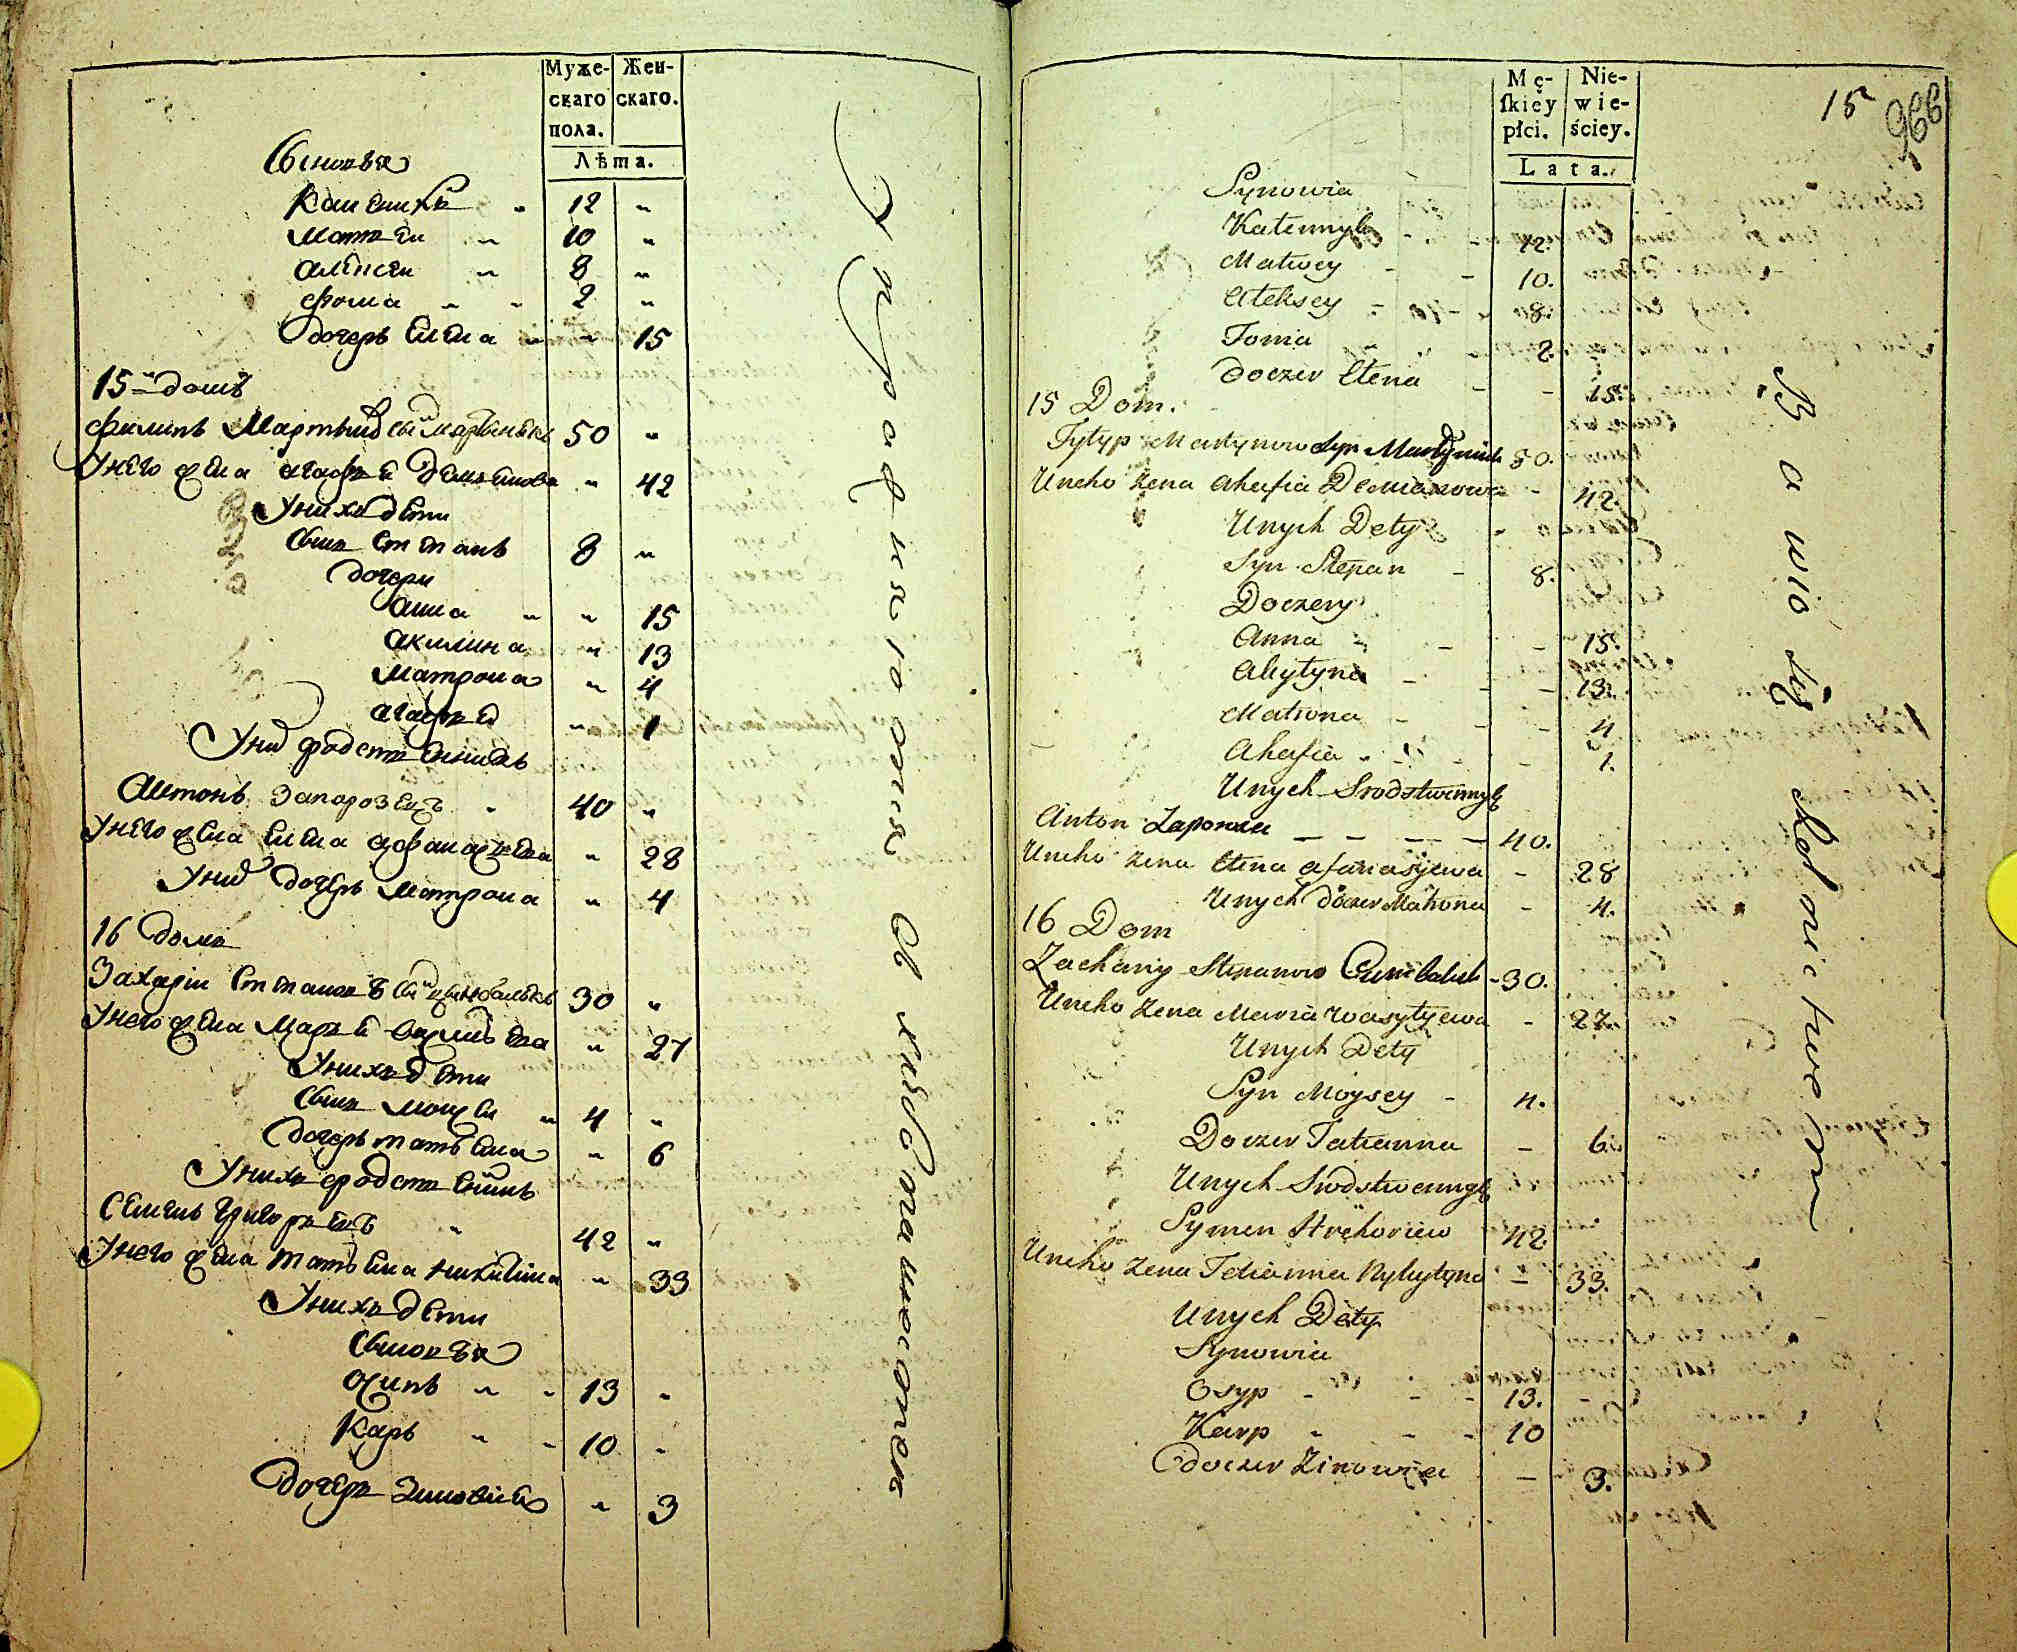 Муже-
скаго
пола.
Жен-
скаго.
Лѣта.
Сыновья
12 "
Матвѣй " 10 "
Алексѣй " 8 "
Фома " " 2 "
Дочерь Елена " " 15
15 домъ
Филипъ Мартыновъ сынъ Мартынѣнко 50 "
У него жена Агафия Демьянова " 42
У нихъ дѣти
Сынъ Степанъ 8 "
Дочери
Анна " " 15
Акилина " 13
Матрона " 4
Агафия " 1
У нихъ сродственникъ
Антонъ Запорожецъ " 40 "
У него жена Елена Афанасьева " 28
У нихъ дочерь Матрона " 4
16 домъ
Захарий Степановъ сынъ 30 "
У него жена Мария Василиева " 27
У нихъ дѣти
Сынъ Моисей " 4 "
Дочерь Татьяна " 6
У нихъ сродственникъ
Семенъ Григорьевъ " 42 "
У него жена Татьяна Никитина " 33
У нихъ дѣти
Сыновья
Осипъ " " 13 "
Карпъ " " 10 "
Дочерь Зиновия " 3
Упражняются в хлебопашестве
Mę-
ſkiey
płci.
Nie-
wie-
ściey.
Lata.
15
966
Synowia
Kalennyk 12.
Matwey 10.
Aleksey 8.
Foma 2.
Doczer Elena 15.
15 Dom.
Fylyp Martynow Syn Martyniuk 50.
Uneho Zena Ahafia Demianowa 42.
Unych Dety
Syn Stepan 8.
Doczery
Anna 15.
Akylyna 13.
Matrona 4
Ahafia 1.
Unych Srodstwennyk
Anton 40.
Uneho Zena Elena Afanasyewa 28
Unych Doczer Matrona 4.
16 Dom
Zachariy Stepanow Cumbaluk 30.
Uneho Zena Maria Wasylyewa 27.
Unych Dety
Syn Moysey 4.
Doczer Tatianna 6.
Unych Srodstwennyk
Symen Hrehoriew 42.
Uneho Zena Tatianna Nykytyna 33.
Unych Dety
Synowia
Osyp 13.
Karp 10
Doczer Zinowia 3.
Bawio się Rolnictwem